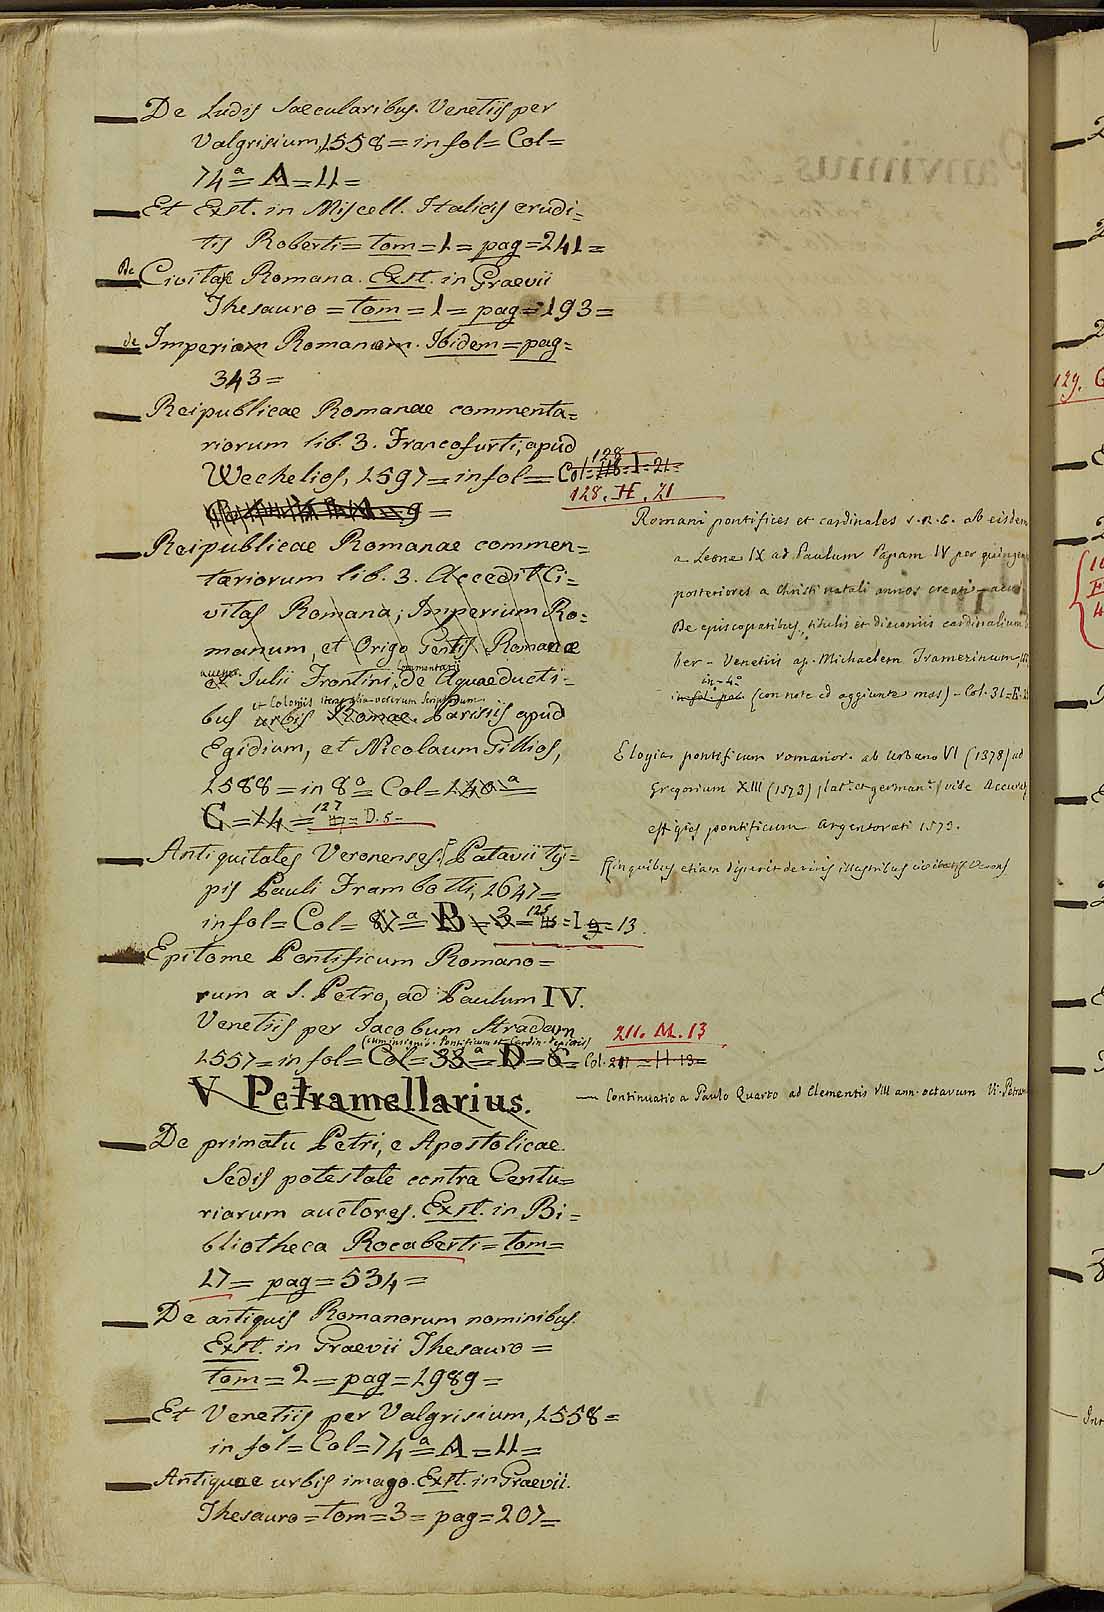 De Ludis Saecularibus. Venetiis per
Valgrisium, 1558 = in fol = Col =
74.a = A = 11 =
Et Exst. in Miscell. Italicis erudi=
tis Roberti = tom = 1 = pag = 241 =
De Civitate Romana. Exst. in Graevii
Thesauro = tom = 1 = pag = 193 =
de Imperio Romano. Ibidem = pag =
343 =
Reipublicae Romanae commenta=
riorum lib. 3. Francofurti, apud
Wechelios, 1597 = in fol = Col = 128 = I = 21 =
128. H. 21
= 9 =
Reipublicae Romanae commen=
tariorum lib. 3. Accedit Ci=
vitas Romana; Imperium Ro=
manum, et Origo Gentis Romanae
Julii Frontini, de Aquaeducti=
Commentarii
et Coloniis
bus urbis Romae. Parisiis apud
Egidium, et Nicolaum Gillios,
1588 = in 8.a = Col = 140.a =
C = 14 = 127 = D. 5 -
Antiquitates Veronenses. Patavii ty=
pis Pauli Frambotti, 1647 =
in fol = Col = 87.a = B = 3 = 128 = I 9 = 13.
Epitome Pontificum Romano=
rum a S. Petro, ad Paulum IV.
Venetiis per Jacobum Stradam
(cum insignib. Pontificum et Cardin.
1557 = in fol = Col = 33.a = D = 6 = Col. 211 = H 13 =
211. M. 13
V Petramellarius.
— Continuatio a Paulo Quarto ad Clementis VIII ann. octavum Vi. Petram
De primatu Petri, e Apostolicae
Sedis potestate contra Centu=
riarum auctores. Exst. in Bi=
bliotheca Rocaberti = tom =
17 = pag = 534 =
De antiquis Romanorum nominibus.
Exst. in Graevii Thesauro =
tom = 2 = pag = 1989 =
Et Venetiis per Valgrisium, 1558 =
in fol = Col = 74.a = A = 11 =
Antiquae urbis imago. Exst. in Graevii.
Thesauro = tom = 3 = pag = 207 =
Romani pontifices et cardinales S. R. E. ab eisdem
a Leone IX ad Paulum Papam IV per quingen
posteriores a Christi natali annos creati
De episcopatibus, titulis et diaconiis cardinalium
ber - Venetiis ap. Michaelem Tramezinum,
in - 4.o
in fol. pab. (con note ed aggiunte mss) - Col. 31 = E.
Elogia pontificum romanor. ab Urbano VI (1378) ad
Gregorium XIII (1573) lat.e et german.e vide Accurat
effigies pontificum Argentorati 1573.
in quibus etiam disserit de viris illustribus civitatis Verons